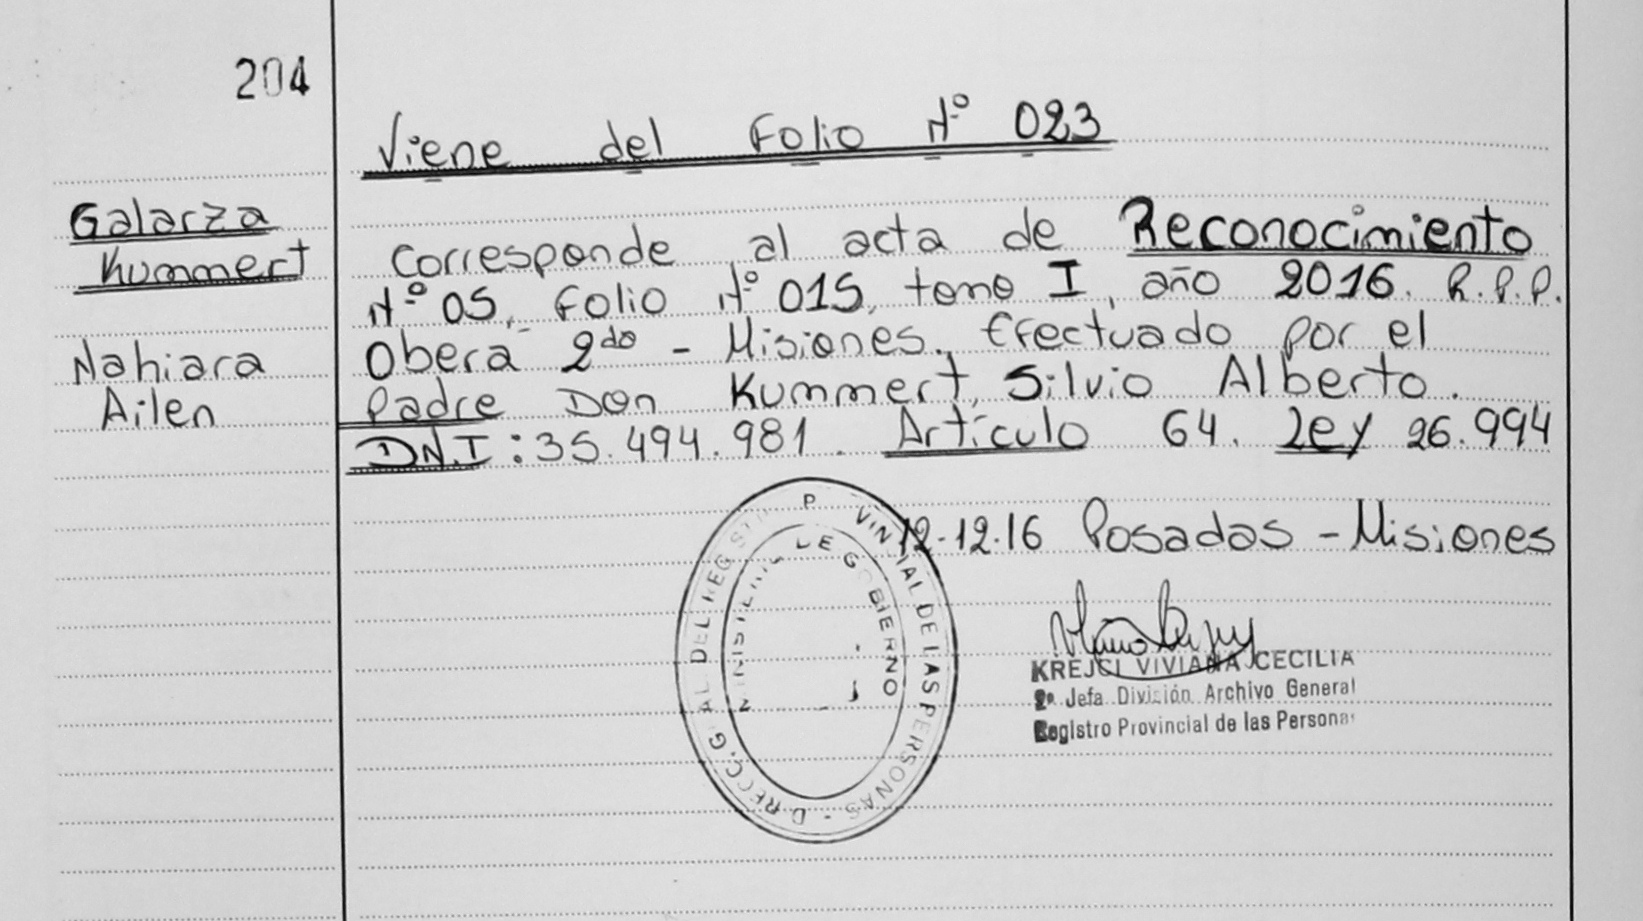 204
Viene del Folio N° 023
Galarza
Kummert
Nahiara
Ailen
Corresponde al acta de Reconocimiento
N° 05, Folio N° 015, tomo I, año 2016. R.P.P.
Oberá 2do - Misiones. Efectuado por el
Padre Don Kummert, Silvio Alberto.
DN.I: 35.494.981. Artículo 64. Ley 26.994
12.12.16 Posadas - Misiones
KREJCI VIVIANA CECILIA
2ª Jefa División Archivo General
Registro Provincial de las Personas
DEL REGIST P VIN IAL DE LAS PERSONAS
DE GOBIERNO